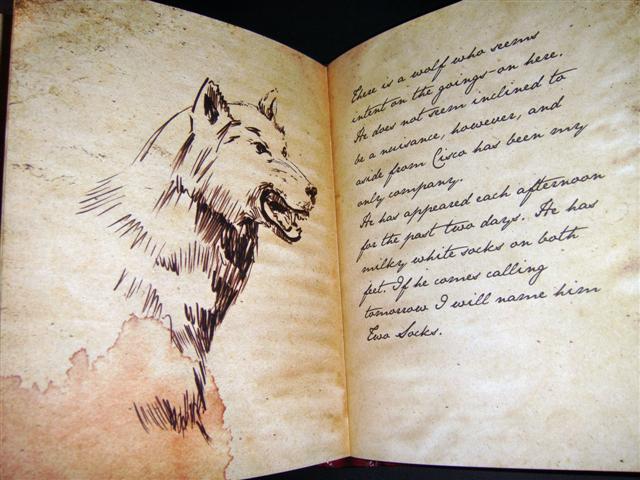 There is a wolf who seems
intent on the goings-on here.
He does not seem inclined to
be a nuisance, however, and
aside from Cisco has been my
only company.
He has appeared each afternoon
for the past two days. He has
milky white socks on both
feet. If he comes calling
tomorrow I will name him
Two Socks.